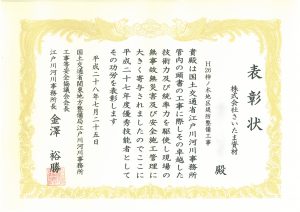 表彰状
株式会社さいたま資材
殿
H26柳ノ木地区堤防整備工事
貴殿は国土交通省江戸川河川事務所
管内の頭書の工事に際しその卓越した
技術力及び統率力を駆使し現場の
無事故無災害及び安全施工管理に
大きく寄与されましたのでここに
平成二十七年度優秀技能者として
その功労を表彰します
平成二十八年七月二十五日
国土交通省関東地方整備局江戸川河川事務所
工事等安全協議会会長
江戸川河川事務所長 金澤 裕勝